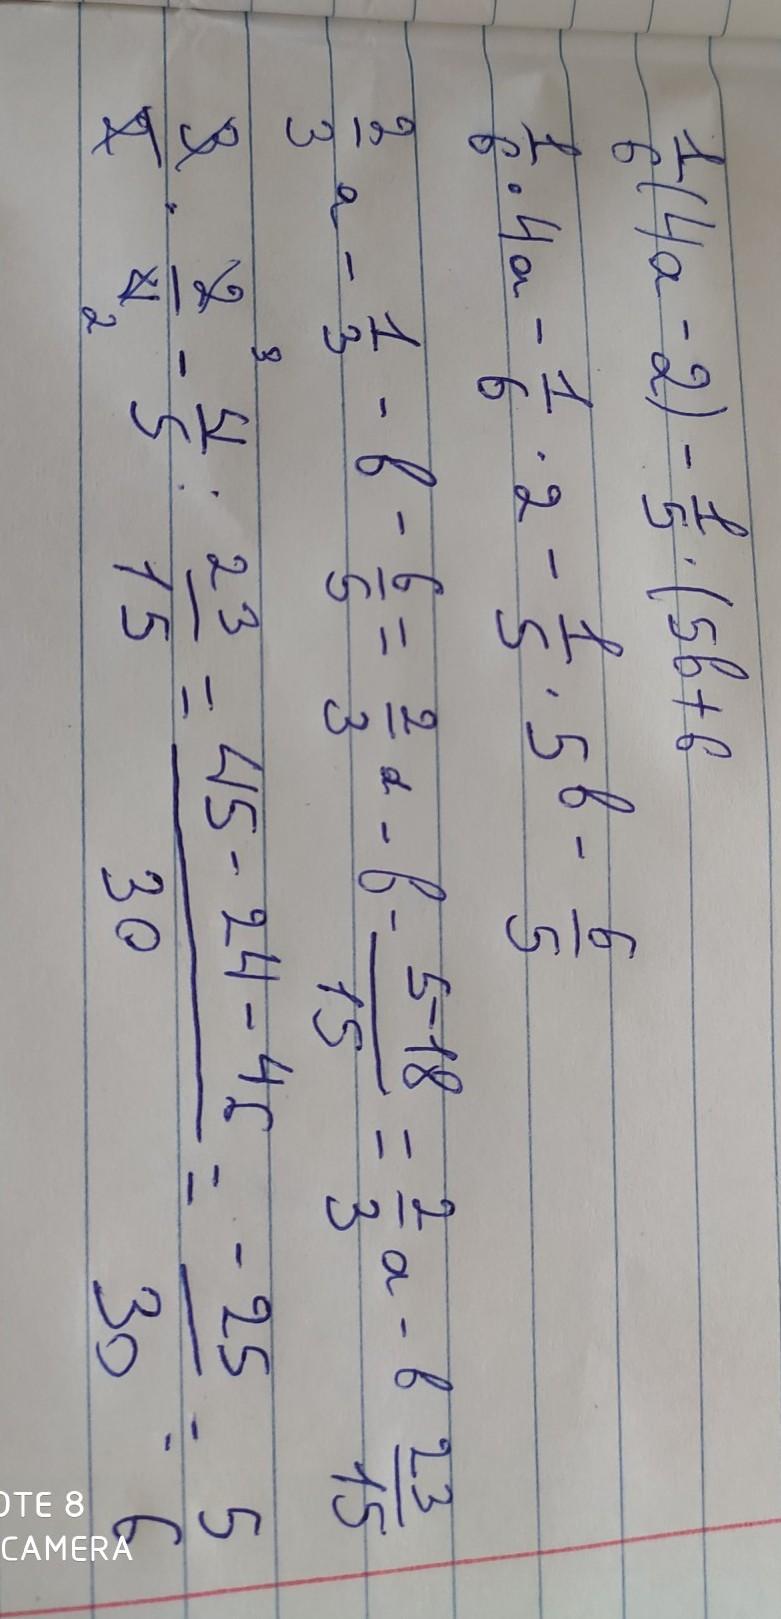 1/6(4a - 2) - 1/5 · (5b + 6
1/6 · 4a - 1/6 · 2 - 1/5 · 5b - 6/5
2/3 a - 1/3 - b - 6/5 = 2/3 a - b - 5-18/15 = 2/3 a - b 23/15
- 4/5 · 23/15 = 45-24-4 /30 = -25/30 = 5/6
OTE 8
CAMERA